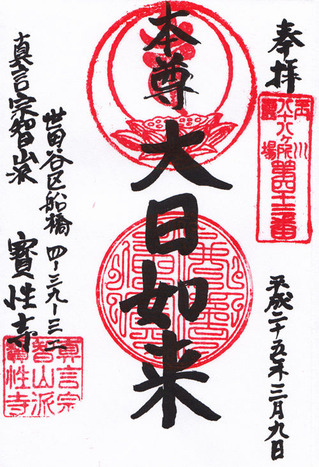 奉拝
玉川
八十八ヶ所
霊場
第四十三番
平成二十五年三月九日
本尊
大日如来
世田谷区船橋 四-三九-三二
真言宗智山派 寳性寺
真言宗
智山派
寳性寺